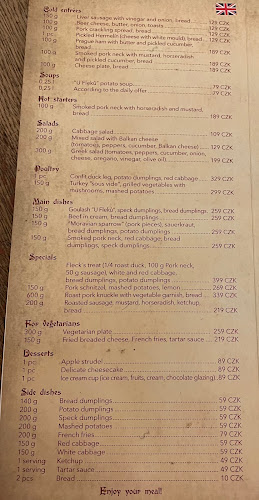 Cold entrées
150 g Liver sausage with vinegar and onion, bread 129 CZK
100 g Beer cheese, butter, onion, toasts
100 g Pork crackling spread, bread
1 pc Pickled Hermelín (cheese with white mould), bread
100 g Prague ham with butter and pickled cucumber,
bread 189 CZK
100 g Smoked pork neck with mustard, horseradish
and pickled cucumber, bread 189 CZK
100 g Cheese plate, bread 189 CZK
Soups
0,25 l "U Fleků" potato soup 79 CZK
0,25 l According to the daily offer 79 CZK
Hot starters
100 g Smoked pork neck with horseradish and mustard,
bread 189 CZK
Salads
200 g Cabbage salad 109 CZK
200 g Mixed salad with Balkan cheese
(tomatoes, peppers, cucumber, Balkan cheese) 129 CZK
300 g Greek salad (tomatoes, peppers, cucumber, onion,
cheese, oregano, vinegar, olive oil) 199 CZK
Poultry
1 pc Confit duck leg, potato dumplings, red cabbage 329 CZK
150 g Turkey "sous vide", grilled vegetables with
mushrooms, mashed potatoes 299 CZK
Main dishes
150 g Goulash "U Fleků", speck dumplings, bread dumplings 259 CZK
150 g Beef in cream, bread dumplings 259 CZK
150 g "Moravian sparrow" (pork pieces), sauerkraut,
bread dumplings, potato dumplings 259 CZK
150 g Smoked pork neck, red cabbage, bread
dumplings, speck dumplings 259 CZK
Specials
Fleck's treat (1/4 roast duck, 100 g Pork neck,
50 g sausage), white and red cabbage,
bread dumplings, potato dumplings 399 CZK
150 g Pork schnitzel, mashed potatoes, lemon 269 CZK
600 g Roast pork knuckle with vegetable garnish, bread 339 CZK
200 g Roasted sausage, mustard, horseradish, ketchup,
bread 219 CZK
For vegetarians
300 g Vegetarian plate 259 CZK
150 g Fried breaded cheese, French fries, tartar sauce 219 CZK
Desserts
1 pc Apple strudel 89 CZK
1 pc Delicate cheesecake 89 CZK
1 pc Ice cream cup (ice cream, fruits, cream, chocolate glazing) 89 CZK
Side dishes
140 g Bread dumplings 59 CZK
200 g Potato dumplings 59 CZK
200 g Speck dumplings 59 CZK
200 g Mashed potatoes 59 CZK
200 g French fries 79 CZK
150 g Red cabbage 59 CZK
150 g White cabbage 59 CZK
1 serving Ketchup 49 CZK
1 serving Tartar sauce 49 CZK
2 pcs Bread 10 CZK
Enjoy your meal!